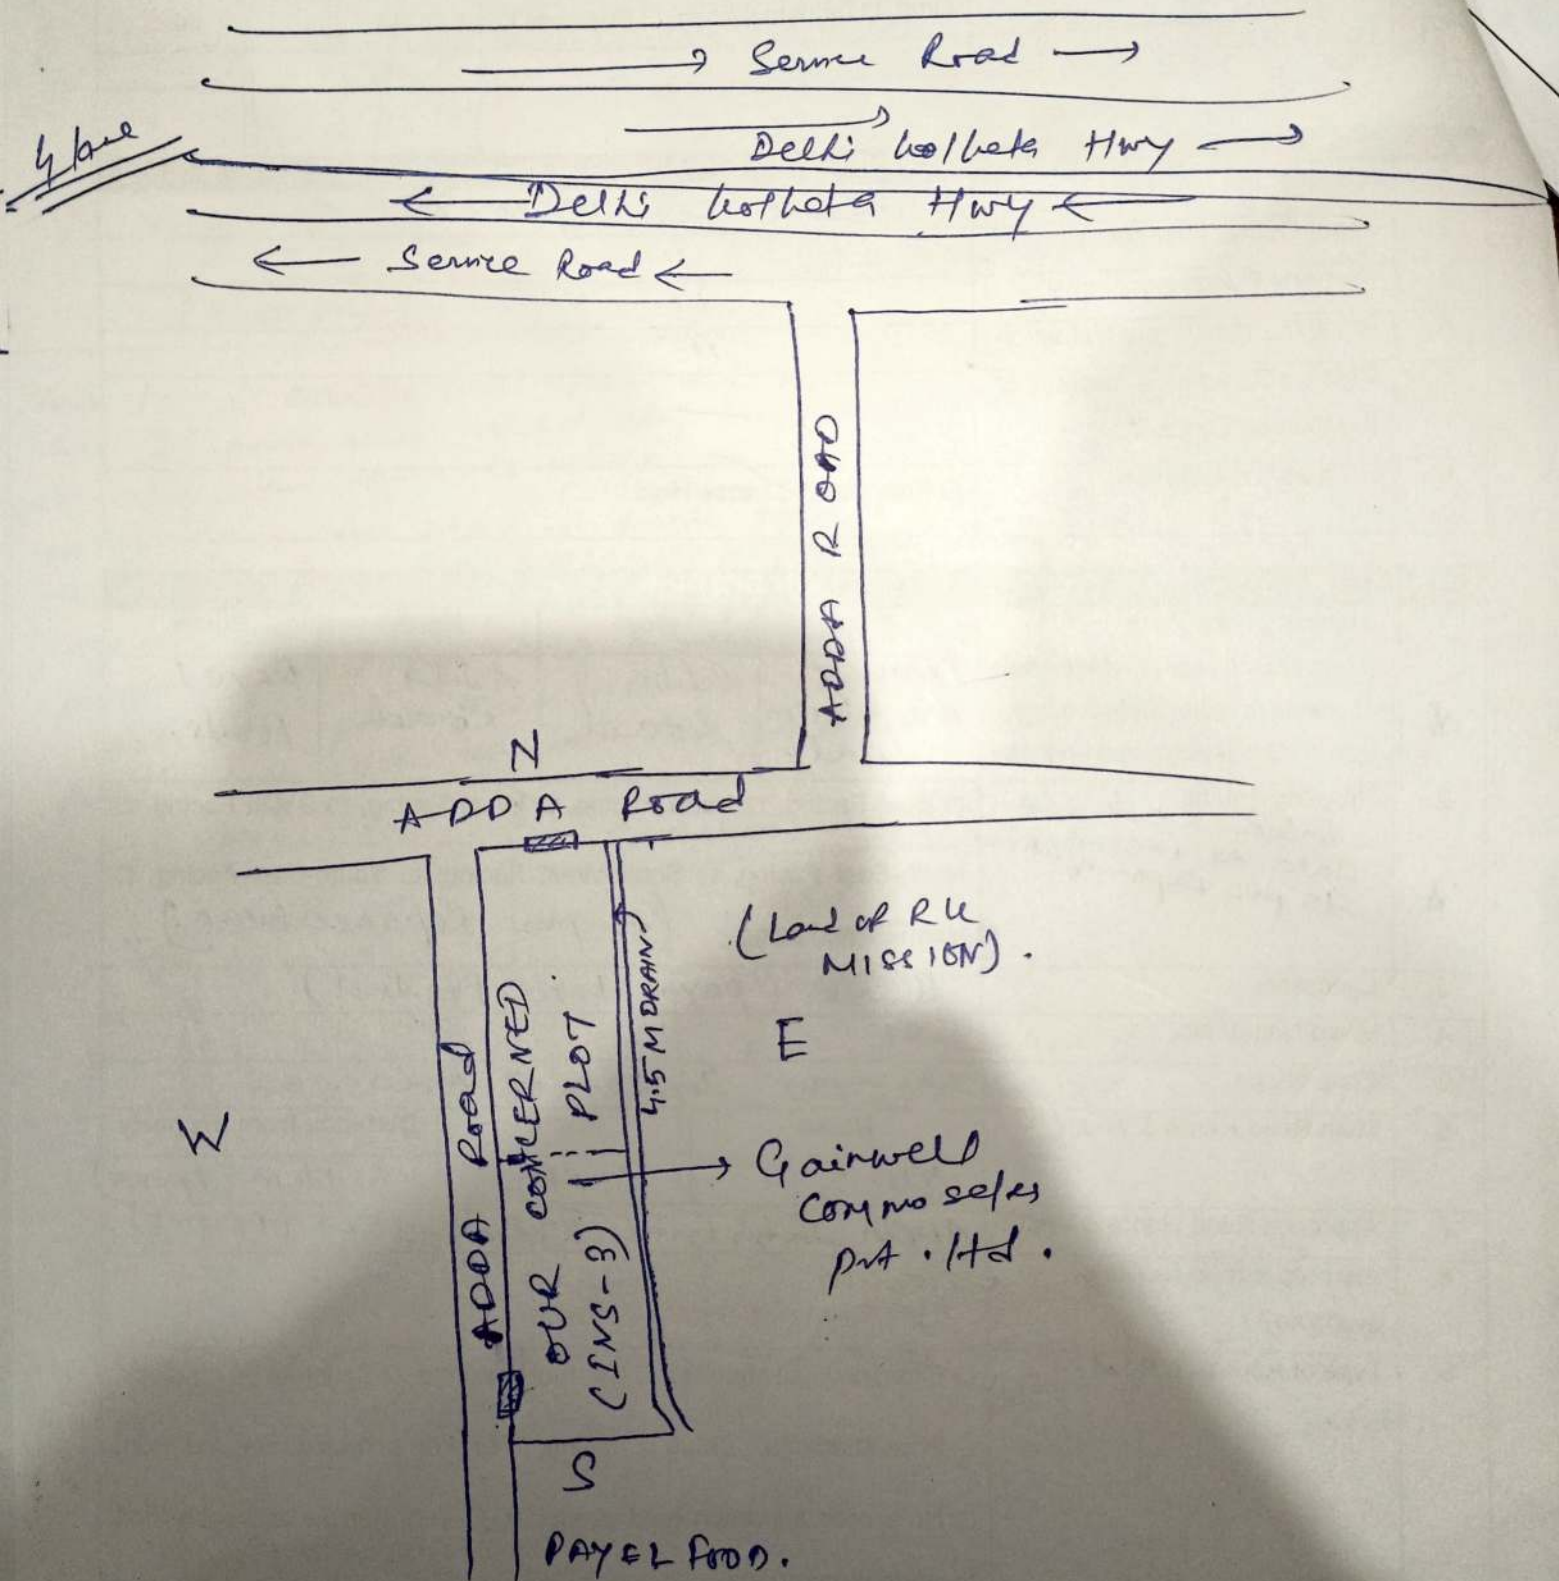 Service Road
4 lane
Delhi Kolkata Hwy
Delhi Kolkata Hwy
Service Road
ADDA ROAD
N
ADDA Road
(Land of RK
MISSION).
4.5 M DRAIN
E
W
ADDA Road
OUR CONCERNED
PLOT
(INS-3)
Gainwell
Commosales
pvt. ltd.
S
PAYEL FOOD.